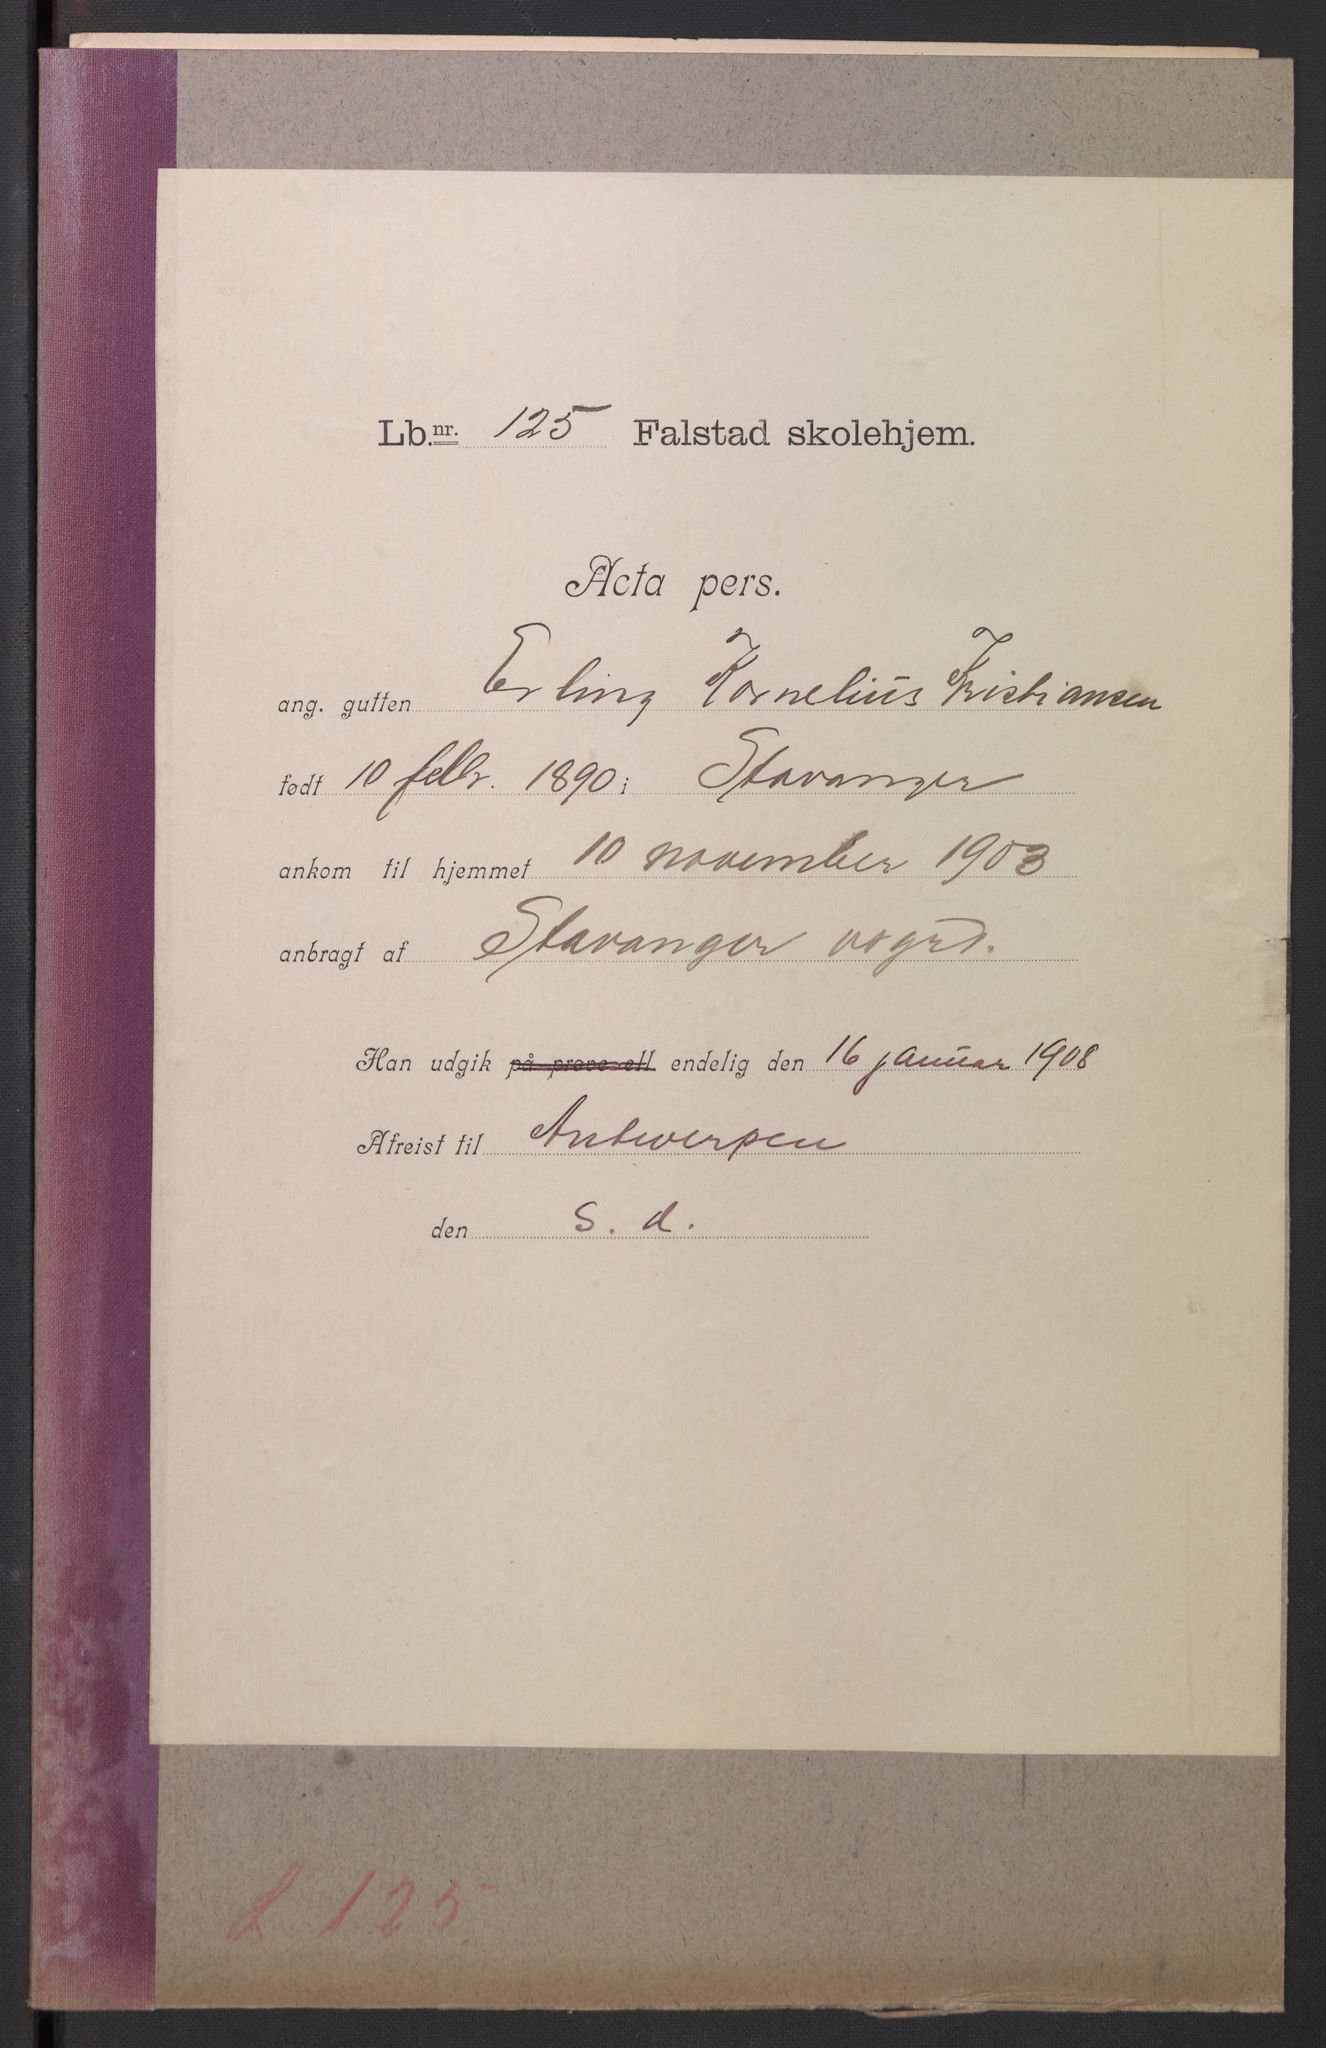 Lb.nr. 125 Falstad skolehjem.
Acta pers.
ang. gutten Erling Kornelius Kristiansen
født 10 febr. 1890 i Stavanger
ankom til hjemmet 10 november 1903
anbragt af Stavanger vøgrd.
Han udgik på prøve ell. endelig den 16 januar 1908
Afreist til Antwerpen
den s. d.
L 125